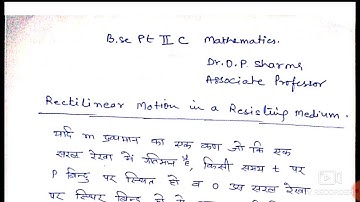 B.Sc Pt II C Mathematics.
Dr. O. P. Sharma
Associate Professor
Rectilinear Motion in a Resisting Medium.
यदि m द्रव्यमान का एक कण जो कि एक
सरल रेखा में गतिमान है, किसी समय t पर
P बिन्दु पर स्थित हो व O उस सरल रेखा
पर स्थिर बिन्दु हो